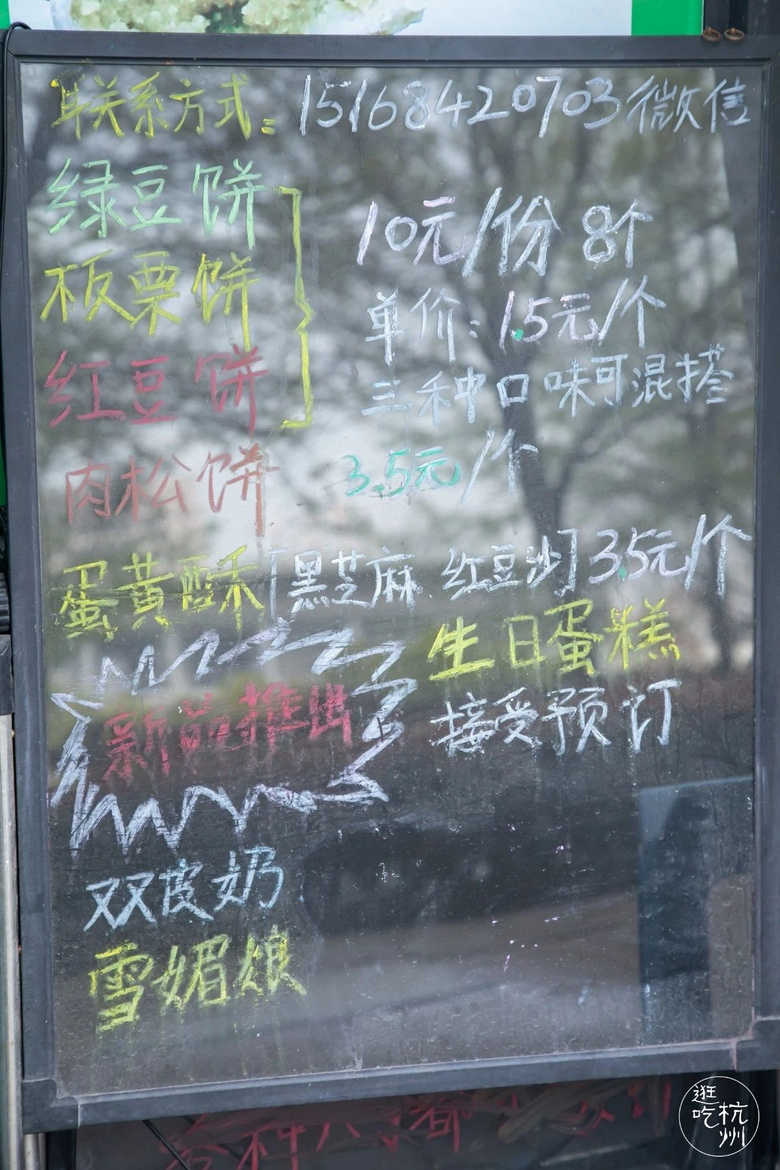 联系方式: 15168420703 微信
绿豆饼
板栗饼
红豆饼
10元/份 8个
单价: 1.5元/个
三种口味可混搭
肉松饼 3.5元/个
蛋黄酥「黑芝麻 红豆沙」3.5元/个
新品推出
生日蛋糕
接受预订
双皮奶
雪媚娘
逛吃杭州